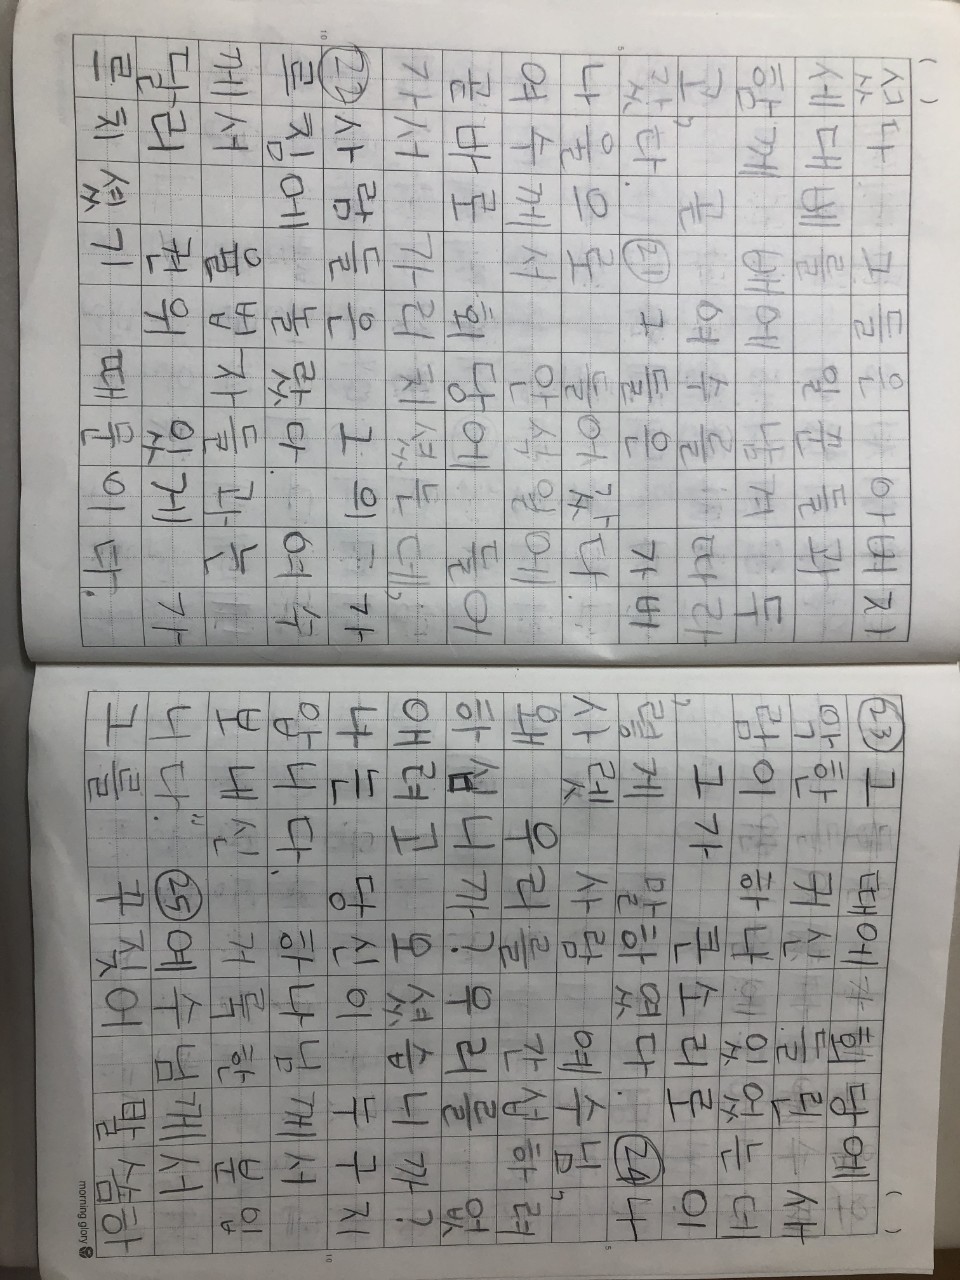 셨다 그들은 아버지
세대베를 일꾼들과
함께 배에 남겨 두
고, 곧 예수를 따라
갔다. ㉑ 그들은 가버
나움으로 들어갔다.
예수께서 안식일에
곧바로 회당에 들어
가서 가르치셨는데,
㉒ 사람들은 그의 가
르침에 놀랐다. 예수
께서 율법자들과는
달리 권위 있게 가
르치셨기 때문이다.
㉓ 그 때에 회당에
악한 귀신 들린 사
람이 하나 있었는데
, 그가 큰 소리로 이
렇게 말하였다. ㉔ 나
사렛 사람 예수님,
왜 우리를 간섭하려
하십니까? 우리를 없
애려고 오셨습니까?
나는 당신이 누구지
압니다. 하나님께서
보내신 거룩한 분입
니다." ㉕ 예수님께서
그를 꾸짖어 말씀하
morning glory